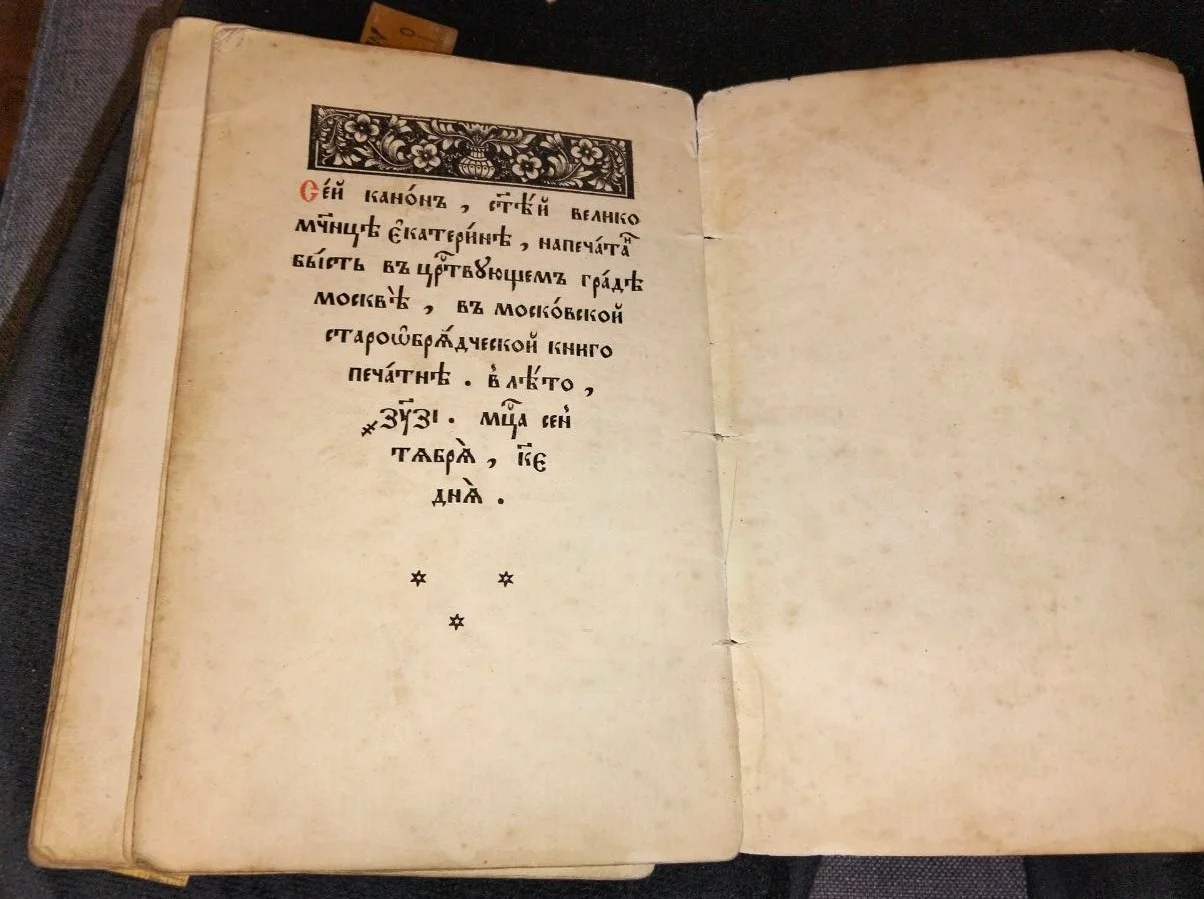 Се́й кано́нъ , ст҃ѣ́й велико
мч҃нцѣ є҆катери́нѣ , напеча́таⷩ҇
бы́сть въ црⷭ҇твꙋющемъ гра́дѣ
москвѣ̀ , въ моско́вской
староѡ҆брѧ́дческой книго
печа́тнѣ . в̾ лѣ́то ,
҂зу҃зі . мцⷭ҇а сен̾
тѧбрѧ̀ , к҃є
днѧ̀ .